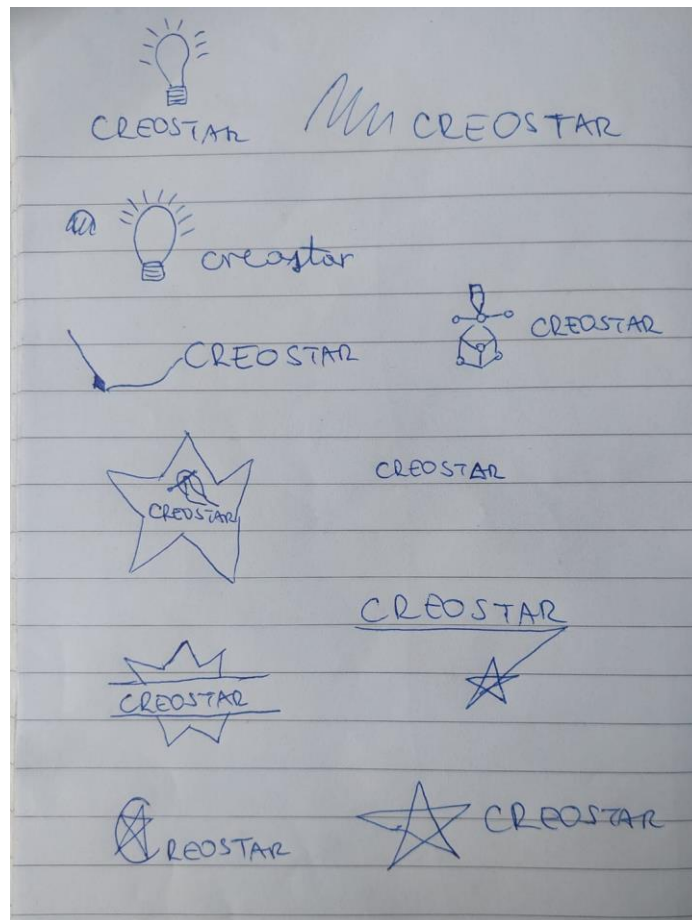 CREOSTAR
CREOSTAR
creostar
CREOSTAR
CREOSTAR
CREOSTAR
CREOSTAR
CREOSTAR
CREOSTAR
CREOSTAR
CREOSTAR